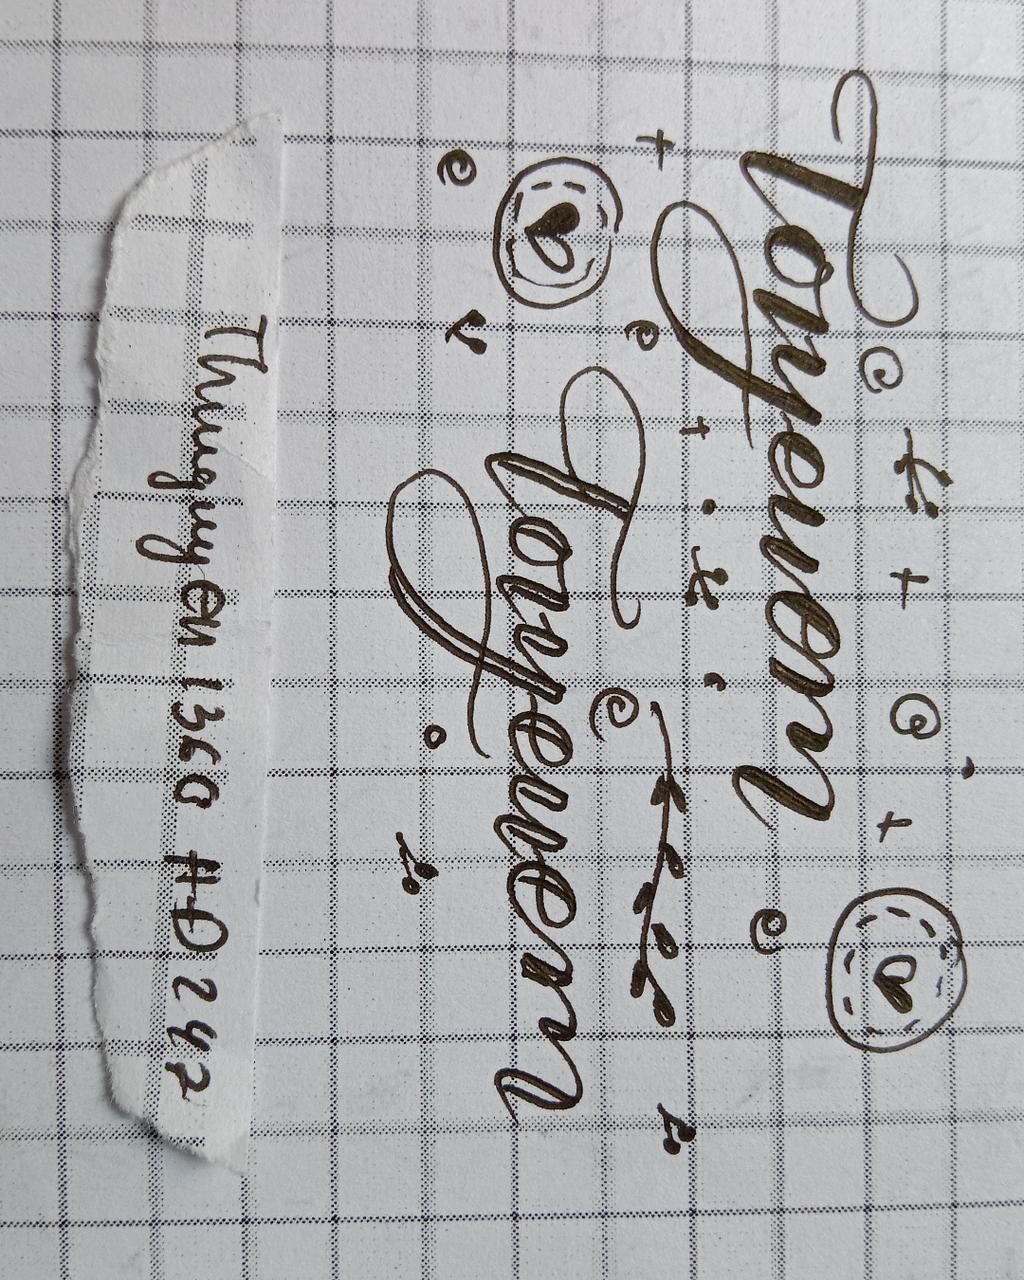 Tonyeuem
Tonyeuem
Thunguyen1360 HD247